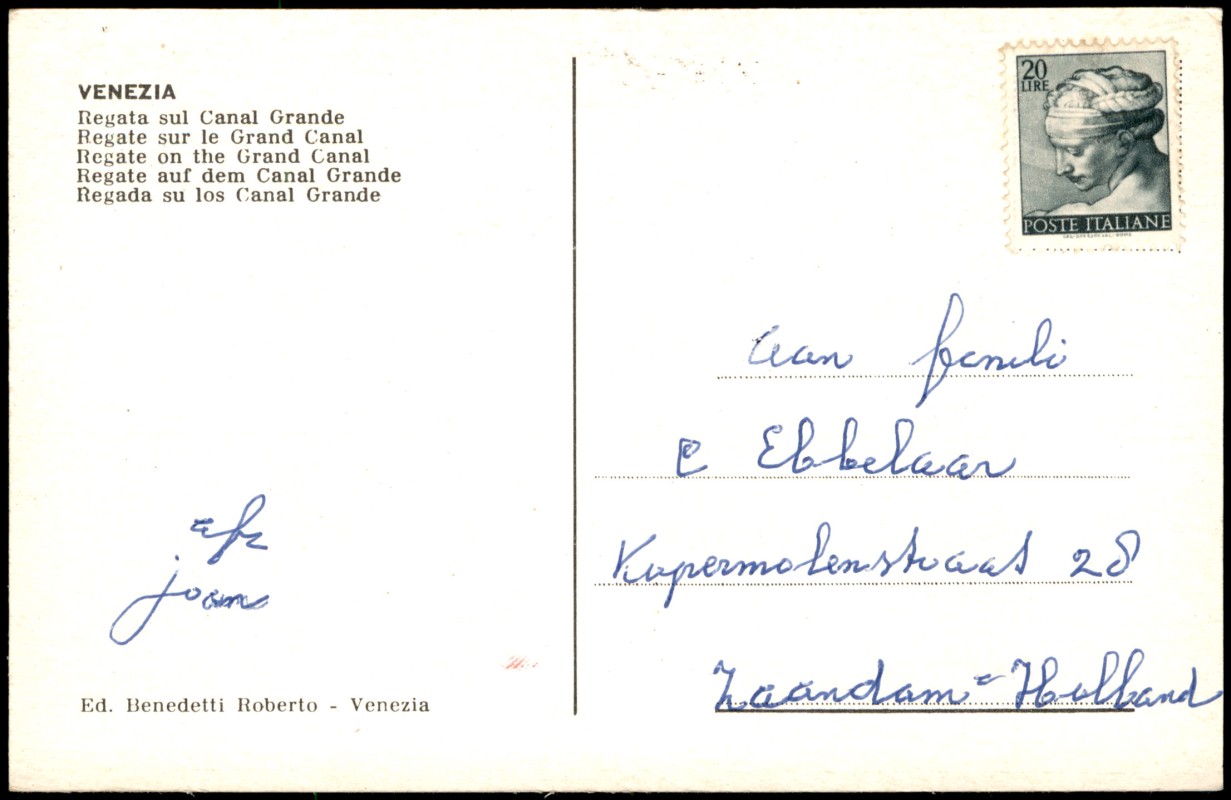 VENEZIA
Regata sul Canal Grande
Regate sur le Grand Canal
Regate on the Grand Canal
Regate auf dem Canal Grande
Regada su los Canal Grande
20
LIRE
POSTE ITALIANE
aan famili
E Ebbelaar
Kupermolenstraat 28
Zaandam = Holland
afz
joan
Ed. Benedetti Roberto - Venezia